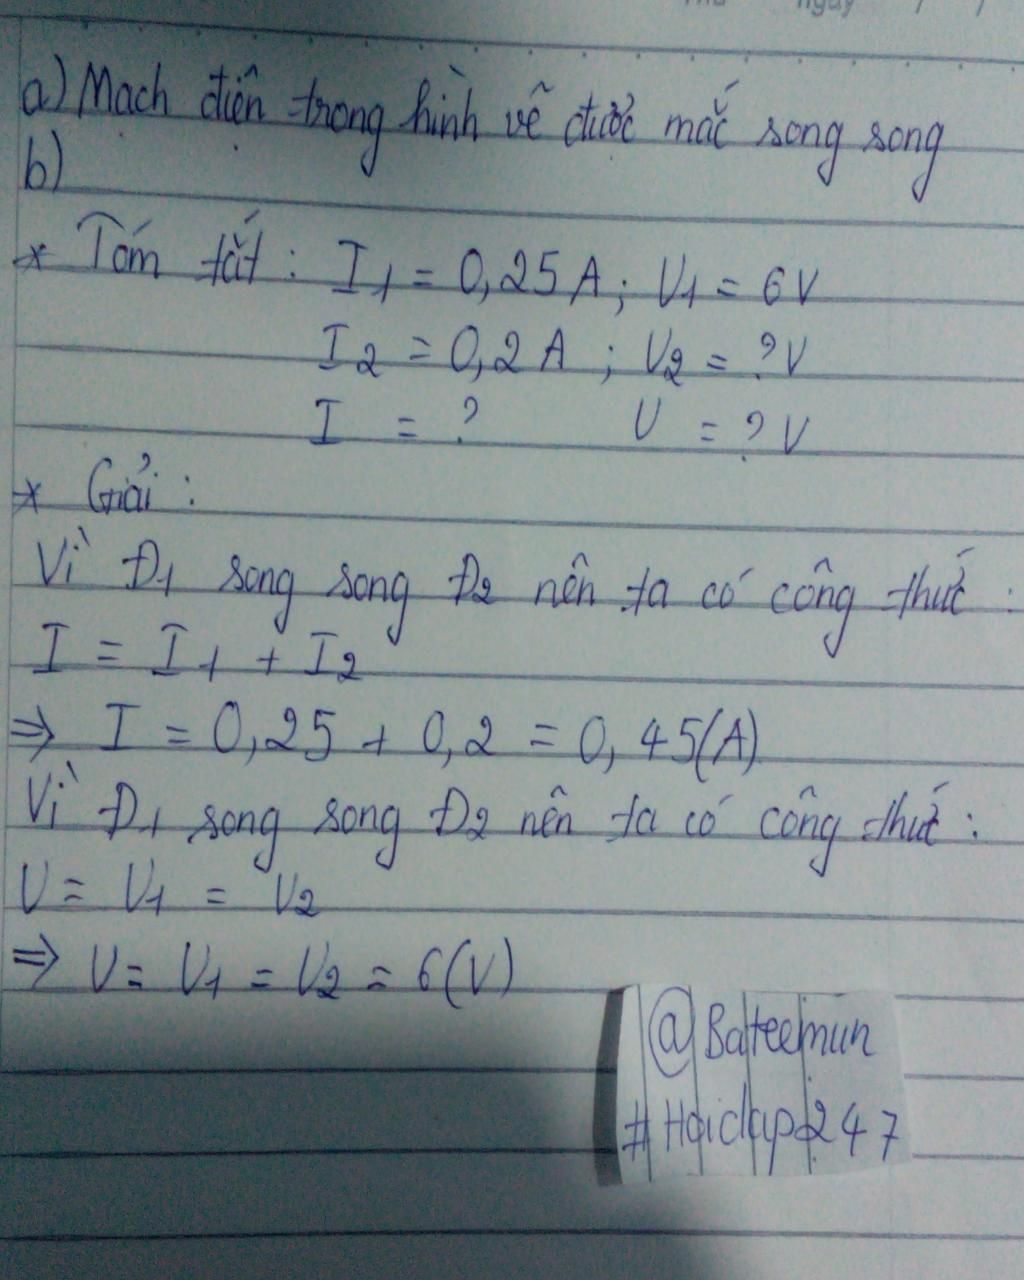 ngày / /
a) Mạch điện trong hình vẽ được mắc song song
b)
* Tóm tắt : I1 = 0,25 A ; U1 = 6 V
I2 = 0,2 A ; U2 = ? V
I = ? U = ? V
* Giải :
Vì Đ1 song song Đ2 nên ta có công thức :
I = I1 + I2
=> I = 0,25 + 0,2 = 0,45 (A)
Vì Đ1 song song Đ2 nên ta có công thức :
U = U1 = U2
=> U = U1 = U2 = 6 (V)
@Bateemun
# Hoidap247